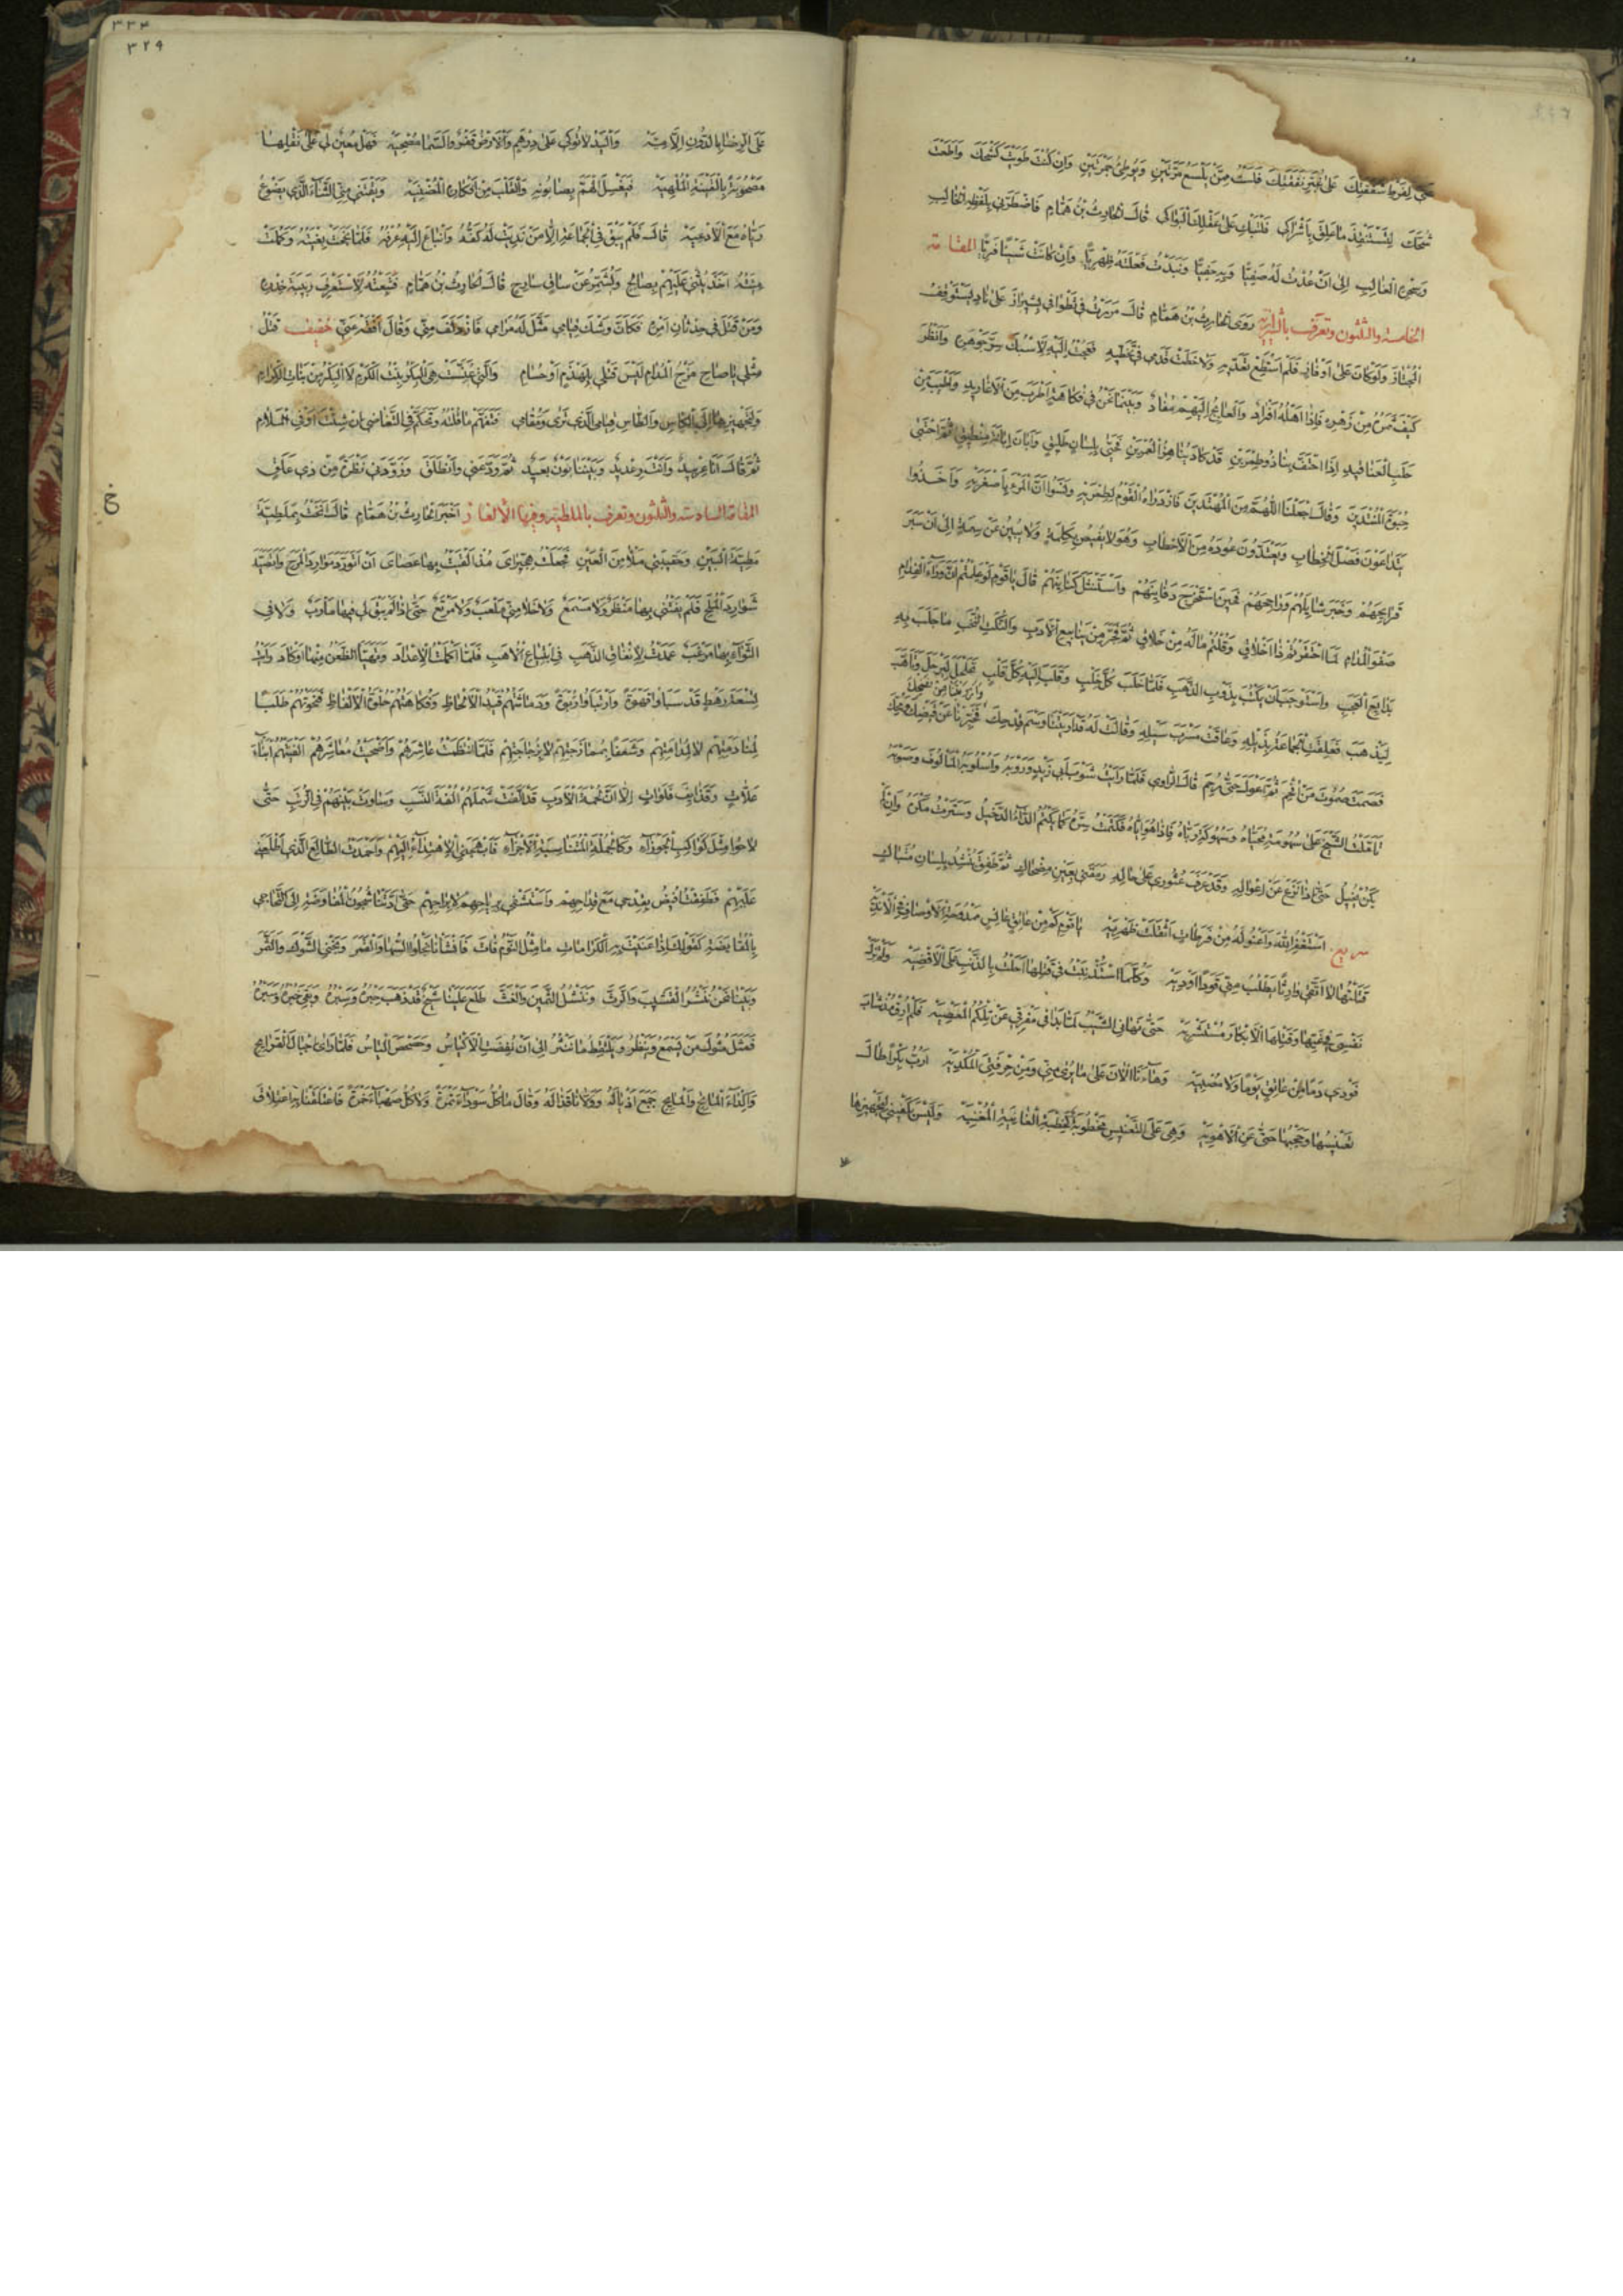 حتى لفرط شفقتك على غبر نفقتك فلست ممن يلسع مرتين ويوطئ جمرتين وان كنت طويت كشحك واطعت
شحك لتستنقذ ما علق باشراكي فلتبك على عقلك البواكي قال الحارث بن همام فاضطرني بلفظه الخالب
وسحره الغالب الى ان عدت له صفيا وبه حفيا ونبذت فعلته ظهريا وان كانت شيئا فريا المقامة
الخامسة والثلثون وتعرف بالشيرازية روى الحارث بن همام قال مررت في تطوافي بشيراز على ناد يستوقف
المجتاز ولو كان على اوفاز فلم استطع تعديه ولا خطت قدمي في تخطيه فعجت اليه لاسبك سر جوهره وانظر
كيف ثمره من زهره فاذا اهله افراد والعايج اليهم مفاد وبينما نحن في فكاهة اطرب من الاغاريد واطيب من
حلب العناقيد اذ احتف بنا ذو طمرين قد كاد يناهز العمرين فحيى بلسان طليق وابان ابانة منطيق ثم احتبى
حبوة المنتدين وقال اجعلنا اللهم من المهتدين فازدراه القوم لطمريه ونسوا ان المرء باصغريه واخذوا
يتداعون فصل الخطاب ويعتدون عوده من الاحطاب وهو لا يفيص بكلمة ولا يبين عن سمة الى ان سبر
قرايحهم وخبر شايلهم وراجحهم فحين استخرج دفاينهم واستنثل كنانتهم قال يا قوم لو علمتم ان وراء الفدام
صفو المدام لما احتقرتم ذا اخلاق وقلتم ماله من خلاق ثم فجر من ينابيع الادب والنكت النخب ما جلب به
بدايع العجب واستوجب ان يكتب بذوب الذهب فلما خلب كل خلب وقلب اليه كل قلب تحلحل ليرحل وتاهب
ليذهب فعلقت الجماعة بذيله وعاقت مسرب سيله وقالت له قد اريتنا وسم قدحك فخبرنا عن قيضك ومحك
فصمت صموت من افحم ثم اعول حتى رحم قال الراوي فلما رايت شوب ابي زيد وروبه واسلوبه المالوف وصوبه
تاملت الشيخ على سهومة محياه وسهوكة رياه فاذا هو اياه فكتمت سره كما يكتم الداء الدخيل وسترت مكره وان لم
يكن يخيل حتى اذا نزع عن اعواله وقد عرف عثوري على حاله رمقني بعين مضحاك ثم طفق ينشد بلسان متباك
سريع استغفر الله واعنو له من فرطات اثقلت ظهريه يا قوم كم من عاتق عانس ممدوحة الاوصاف في الانديه
قتلتها لا اتقي وارثا يطلب مني قودا او ديه وكلما استذنبت في قتلها احلت بالذنب على الاقضيه ولم تزل
نفسي في غيها وقتلها الابكار مستشريه حتى نهاني الشيب لما بدا في مفرقي عن تلكم المعصيه فلم ارق مذ شاب
فودي دما من عاتق يوما ولا مصبيه وها انا الان على ما يرى مني ومن حرفتي المكديه ارب بكرا طال
تعنيسها وحجبها حتى عن الاهويه وهي على التعنيس مخطوبة كخطبة الغانية المغنيه وليس يكفيني لتجهيزها
على الرضا بالدون الا ميه واليد لا توكي على درهم والارض قفر والسما مصحيه فهل معين لي على نقلها
مصحوبة بالقينة الملهيه فيغسل الهم بصابونه والقلب من افكاره المضنيه ويقتني مني الثناء الذي يضوع
رياه مع الادعيه قال فلم يبق في الجماعة الا من نديت له كفه وانباع اليه عرفه فلما نجحت بغيته وكملت
مئته اخذ يثني عليهم بصالح ويشمر عن ساق سارح قال الحارث بن همام فتبعته لاستعرف ربيبة خدره
ومن قتل في حدثان امره فكان وشك قيامي مثل له مرامي فازدلف مني وقال افقه عني خفيف قتل
مثلي يا صاح مزج المدام ليس قتلي بلهذم او حسام والتي عنست هي البكر بنت الكرم لا البكر من بنات الكرام
ولتجهيزها الى الكاس والطاس قيامي الذي ترى ومقامي فتفهم ما قلته وتحكم في التغاضي ان شئت او في الملام
ثم قال انا عربيد وانت رعديد وبيننا بون بعيد ثم ودعني وانطلق وزودني نظرة من ذي علق
المقامة السادسة والثلثون وتعرف بالملطية وفيها الألغاز اخبر الحارث بن همام قال انخت بملطية
مطية البين وحقيبتي ملأ من العين فجعلت هجيراى مذ القيت بها عصاى ان اتورد موارد المرح واتصيد
شوارد الملح فلم يفتني بها منظر ولا مسمع ولا خلا مني ملعب ولا مرتع حتى اذا لم يبق لي فيها مأرب ولا في
الثواء بها مرغب عمدت لانفاق الذهب في ابتياع الاهب فلما اكملت الاعداد وتهيأ الظعن منها او كاد رايت
تسعة رهط قد سباوا قهوة وارتباوا ربوة ودماثتهم قيد الالحاظ وفكاهتهم حلوة الالفاظ فنحوتهم طلبا
لمنادمتهم لا لمدامتهم وشغفا بممازجتهم لا بزجاجتهم فلما انتظمت عاشرهم واضحيت معاشرهم الفيتهم ابناء
علات وقذايف فلوات الا ان لحمة الادب قد الفت شملهم الفة النسب وساوت بينهم في الرتب حتى
لاحوا مثل كواكب الجوزاء وكالجملة المتناسبة الاجزاء فابهجني الاهتداء اليهم واحمدت الطالع الذي اطلعني
عليهم فطفقت افيض بقدحي مع قداحهم واستشفي برياحهم لا براحهم حتى ادتنا شجون المفاوضة الى التحاجي
بالمقايضة كقولك اذا عنيت به الكرامات ما مثل النوم فات فانشانا نجلوا السها والقمر ونجني الشوك والثمر
وبينا نحن ننشر القشيب والرث وننشل السمين والغث طلع علينا شيخ قد ذهب حبره وسبره وبقي خبره وسبره
فمثل مثول من يسمع وينظر ويلتقط ما ننثر الى ان نفضت الاكياس وحصحص الياس فلما راى اجبال القرايح
واكداء الماتح والمايح جمع اذياله وولانا قذاله وقال ما كل سوداء تمرة ولا كل صهباء خمرة فاعتلقنا به اعتلاق